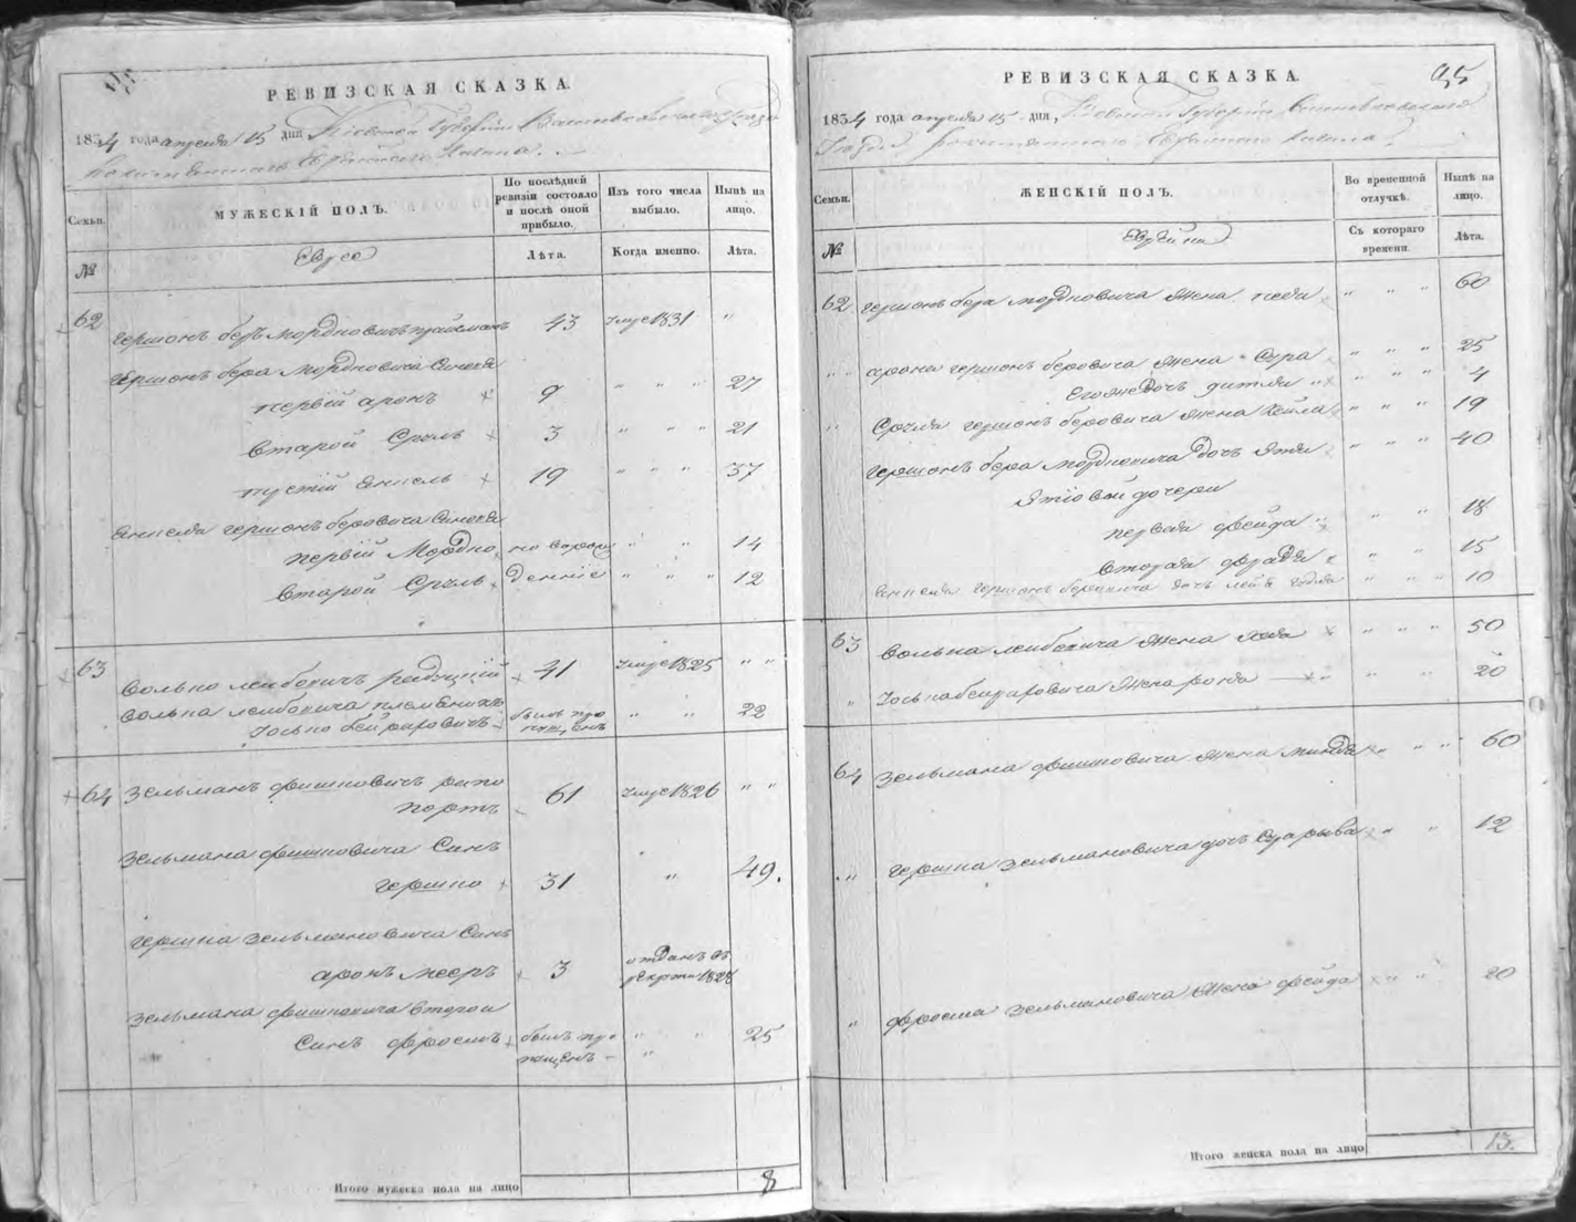 РЕВИЗСКАЯ СКАЗКА.
1834 года апреля 15 дня Киевской Губернии Васильковского уезда
Еврейского Кагала.
Семьи.
МУЖЕСКІЙ ПОЛЪ.
По послѣдней ревизіи состояло и послѣ оной прибыло.
Изъ того числа выбыло.
Нынѣ на лицо.
№
Евреи
Лѣта.
Когда именно.
Лѣта.
62 Гершонъ беръ Мордковичъ 43 умре 1831 "
Гершонъ бера Мордковича Сыновья
первый аронъ 9 " " " 27
Вторый Сруль 3 " " " 21
Янкель 19 " " " 37
Янкеля гершонъ беровича Сыновья
первый Мордко новорож 14
Вторый Сруль денные " " " 12
63 Волько лейбовичъ 41 умре 1825 " "
Волька лейбовича племянникъ
Іосько былъ про " " 22
пущенъ
64 Зельманъ фишковичъ рапо
портъ 61 умре 1826 " "
Зельмана фишковича Сынъ
гершко 31 " 49.
гершка Зельмановича Сынъ
аронъ мееръ 3 отданъ въ
рекруты 1828
Зельмана фишковича второй
Сынъ фроемъ былъ про " " 25
пущенъ "
Итого мужеска пола на лицо 8
РЕВИЗСКАЯ СКАЗКА.
95
1834 года апреля 15 дня, Киевской Губернии Васильковского
Уезда Еврейского Кагала
Семьи.
ЖЕНСКІЙ ПОЛЪ.
Во временной отлучкѣ.
Нынѣ на лицо.
№
Еврейки
Съ котораго времени.
Лѣта.
62 гершонъ бера мордковича жена " " " 60
арона гершонъ беровича жена Сура " " " 25
Его же дочь " " " 4
Сруля гершонъ беровича жена Хейла " " " 19
гершонъ бера мордковича дочь Этля " " " 40
дочери
первая фейга " " 18
вторая " " 15
Янкеля гершонъ беровича дочь " " " 10
63 Волька лейбовича жена " " " 50
" Іоська жена " " 20
64 Зельмана фишковича жена минда " " " 60
" гершка зельмановича дочь Сура рыва " " 12
" фроема зельмановича жена фейга " " 20
Итого женска пола на лицо 13.